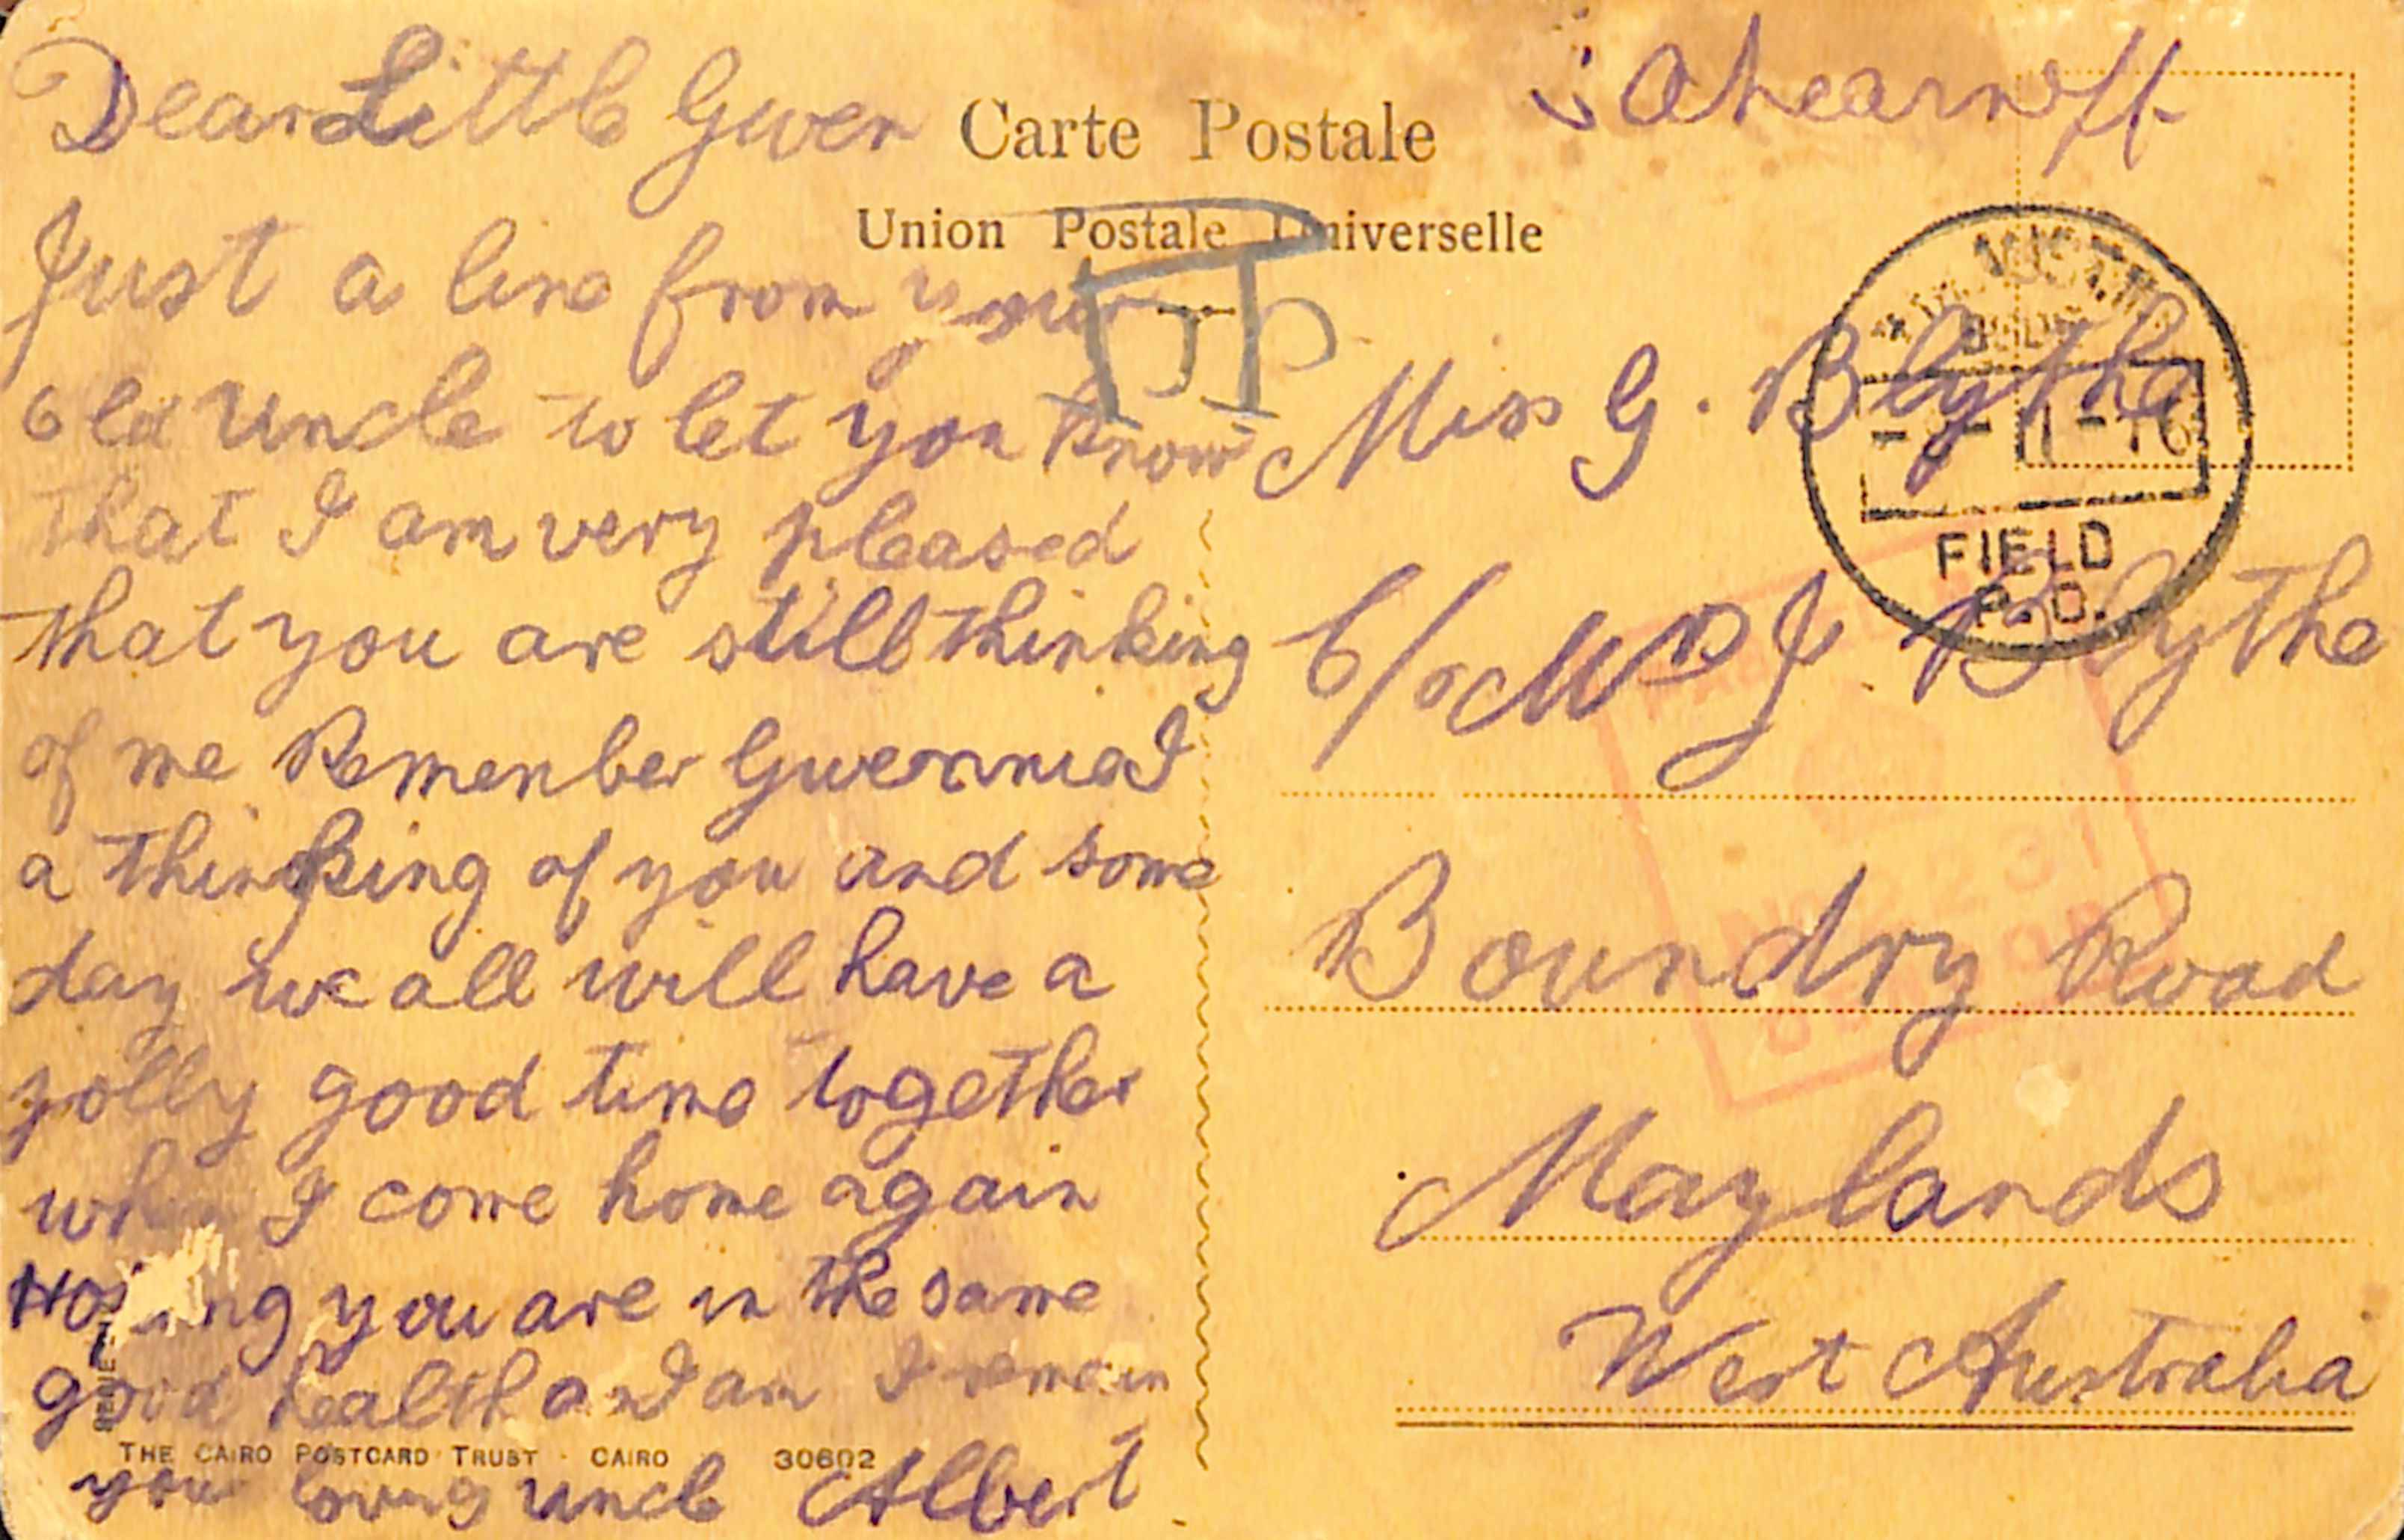 Dear Little Gwen
Just a line from your
old Uncle to let you know
that I am very pleased
that you are still thinking
of me Remember Gwennie I
a thinking of you and some
day we all will have a
jolly good time together
when I come home again
Hoping you are in the same
good health as I am I remain
your loving uncle Albert
Carte Postale
Union Postale Universelle
Miss G. Blythe
C/o Mrs J. Blythe
Boundry Road
Maylands
West Australia
11-16
FIELD
P.O.
THE CAIRO POSTCARD TRUST - CAIRO 30602